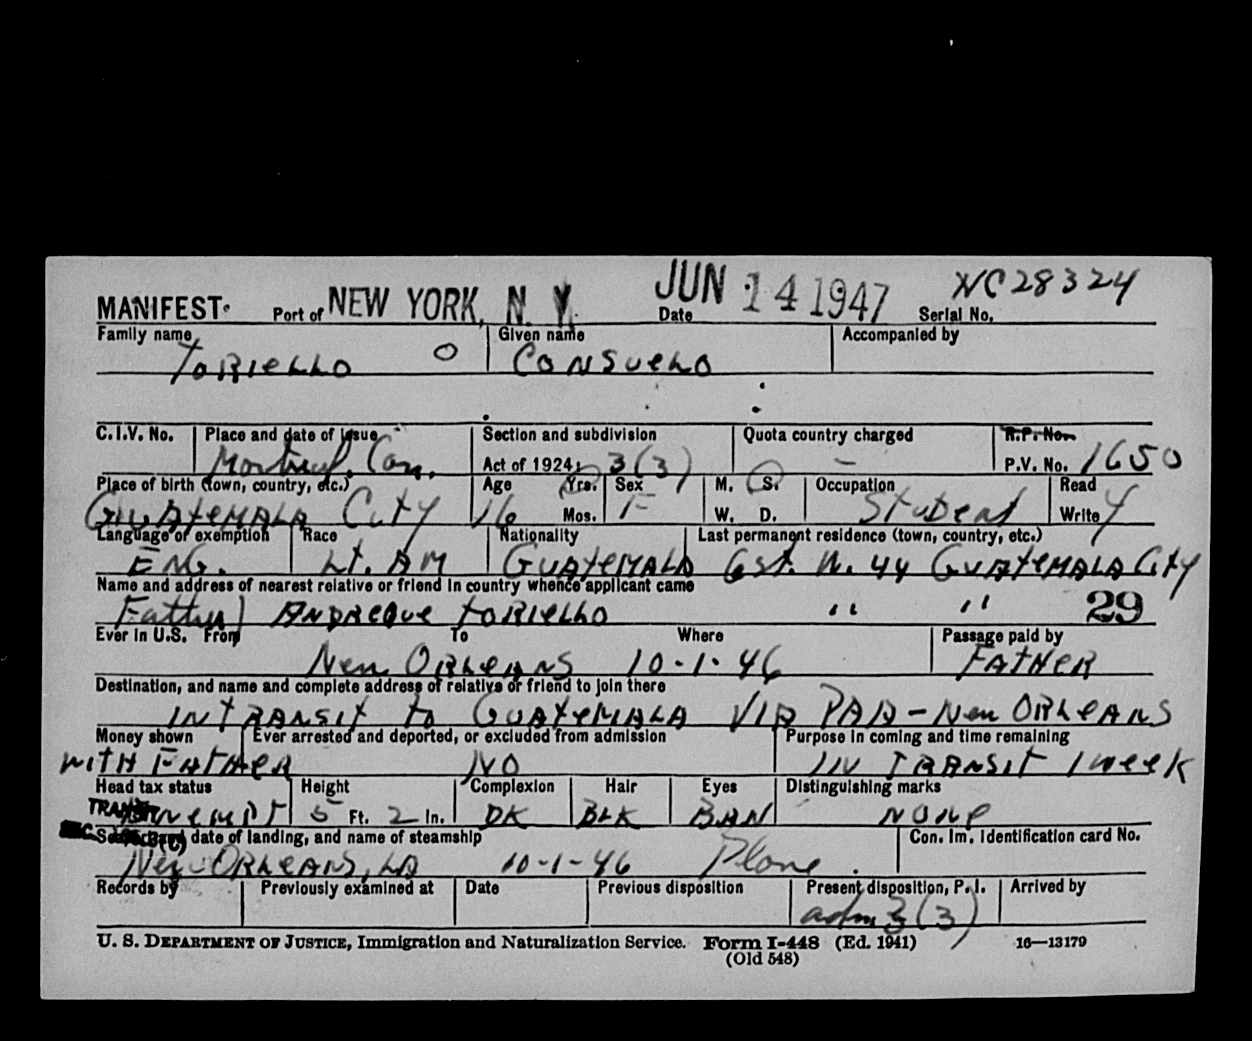 JUN 14 1947 NC28324
MANIFEST Port of NEW YORK, N. Y. Date Serial No.
Family name Given name Accompanied by
TORIELLO O CONSUELO
C.I.V. No. Place and date of issue Section and subdivision Quota country charged R.P. No.
Montreal, Can. Act of 1924, 3(3) – P.V. No. 1650
Place of birth (town, country, etc.) Age Yrs. Sex M. S. Occupation Read
GUATEMALA City 16 Mos. F W. D. Student Write Y
Language or exemption Race Nationality Last permanent residence (town, country, etc.)
ENG. Lt. AM GUATEMALA 6 St. N. 44 GUATEMALA City
Name and address of nearest relative or friend in country whence applicant came
Father) TORIELLO " " 29
Ever in U.S. From To Where Passage paid by
New ORLEANS 10-1-46 FATHER
Destination, and name and complete address of relative or friend to join there
IN TRANSIT to GUATEMALA VIA PAA - New ORLEANS
Money shown Ever arrested and deported, or excluded from admission Purpose in coming and time remaining
WITH FATHER NO IN TRANSIT 1 week
Head tax status Height Complexion Hair Eyes Distinguishing marks
TRANSIT 5 Ft. 2 In. DK BLK BRN NONE
date of landing, and name of steamship Con. Im. Identification card No.
New ORLEANS, LA 10-1-46 Plane
Records by Previously examined at Date Previous disposition Present disposition, P. I. Arrived by
adm 3(3)
U. S. DEPARTMENT OF JUSTICE, Immigration and Naturalization Service. Form I-448 (Ed. 1941) 16—13179
(Old 548)